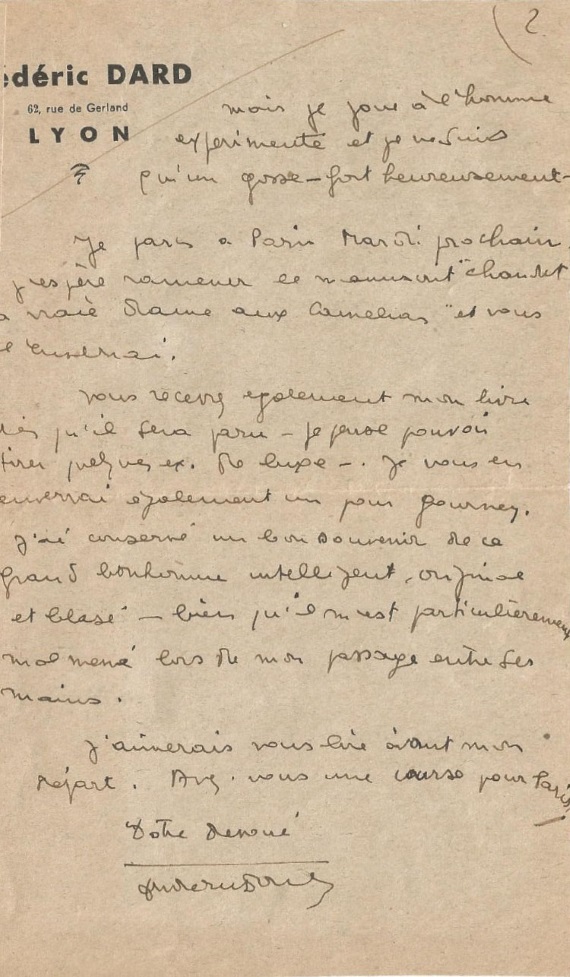 2.
édéric DARD
62, rue de Gerland
LYON
mais je joue à l'homme
expérimenté et je ne suis
qu'un gosse - fort heureusement -
Je pars à Paris Mardi prochain.
j'espère ramener le manuscrit "chandet
a vraie Dame aux Camelias" et vous
l'enverrai.
Vous recevrez également mon livre
dès qu'il sera paru - Je pense pouvoir
tirer quelques ex. de luxe -. Je vous en
enverrai également un pour gourney.
J'ai conservé un bon souvenir de ce
grand bonhomme intelligent, original
et blasé - bien qu'il m'eut particulièrement
malmené lors de mon passage entre ses
mains.
J'aimerais vous lire avant mon
départ. Avez-vous une course pour Paris?
Votre dévoué